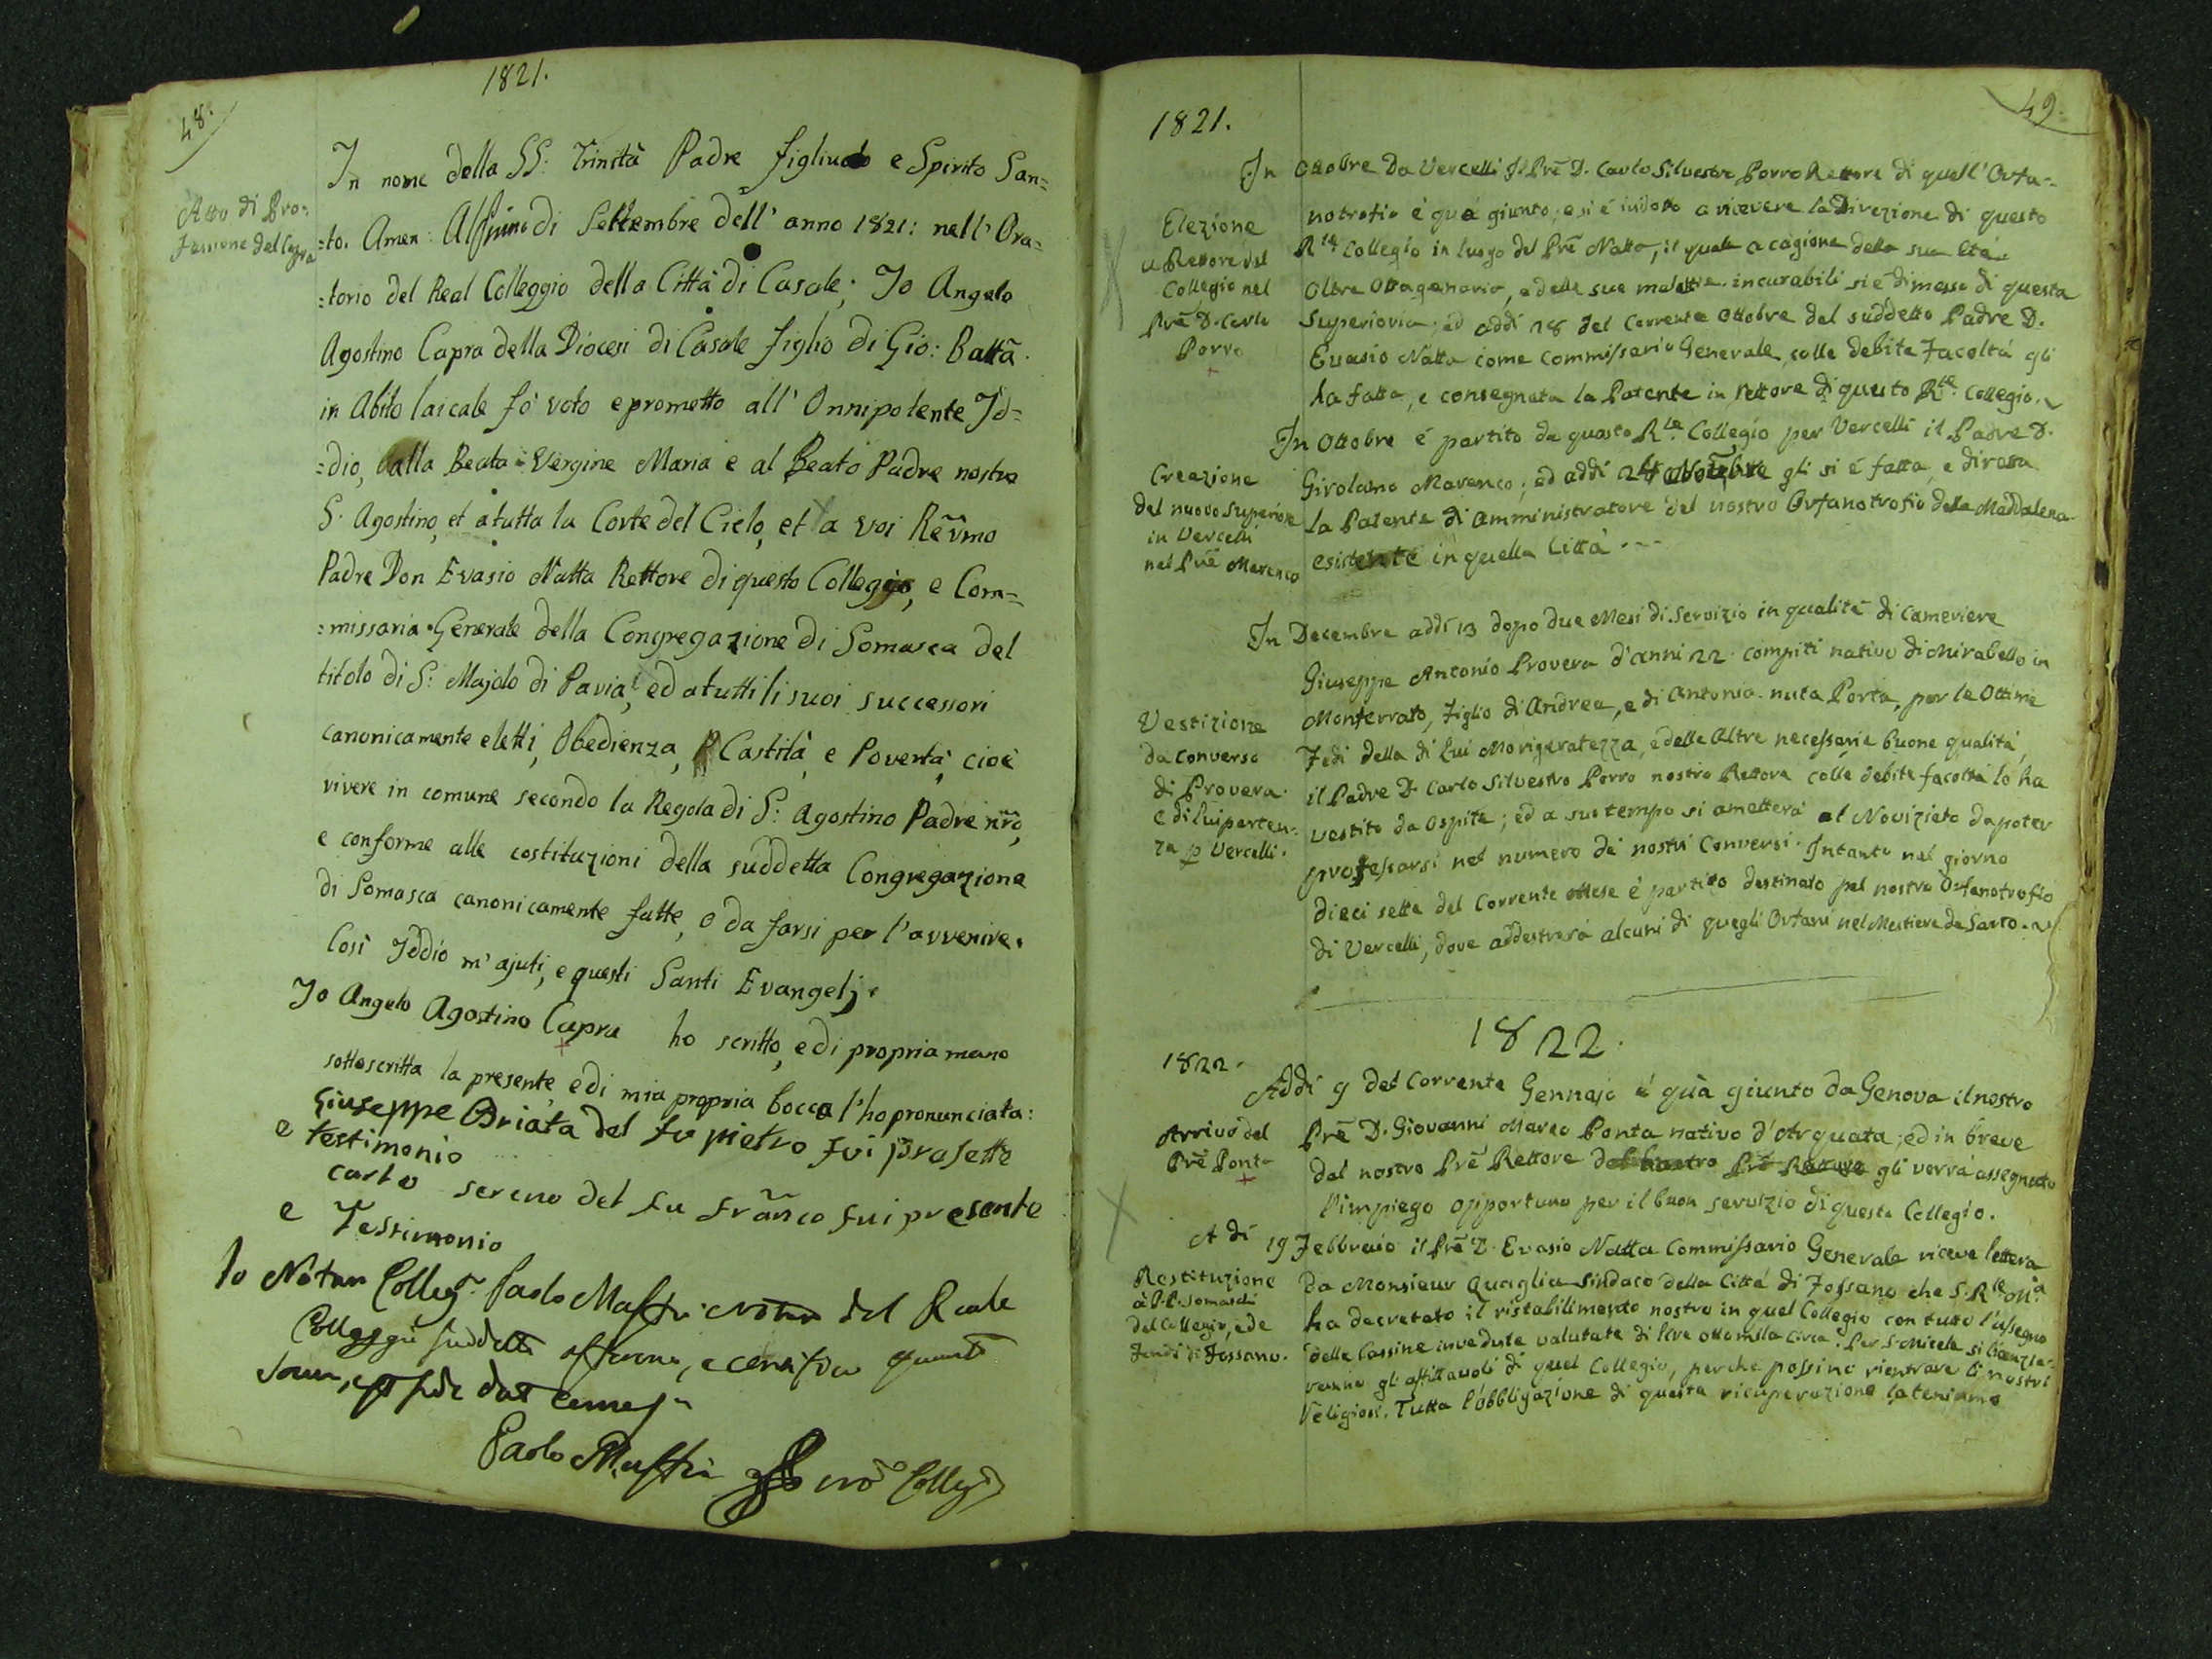 48.
1821.
Atto di Pro=
fessione del Capra
In nome della SS: Trinità Padre figliuolo e Spirito San=
=to. Amen: Al primo di Settembre dell' anno 1821: nell' Ora=
=torio del Real Colleggio della Città di Casale; Io Angelo
Agostino Capra della Diocesi di Casale figlio di Gio: Battã.
in Abito laicale fò voto e prometto all' Onnipotente Id=
=dio, alla Beata Vergine Maria e al Beato Padre nostro
S. Agostino, et a tutta la Corte del Cielo, et a voi Rev̄mo
Padre Don Evasio Natta Rettore di questo Colleggio, e Com=
=missaria Generale della Congregazione di Somasca del
titolo di S: Majolo di Pavia, ed a tutti li suoi successori
canonicamente eletti, Obedienza, Castità, e Povertà, cioè
vivere in comune secondo la Regola di S: Agostino Padre nr̃o,
e conforme alle costituzioni della suddetta Congregazione
di Somasca canonicamente fatte, o da farsi per l'avvenire.
Così Iddio m' ajuti, e questi Santi Evangelj.
Io Angelo Agostino Capra ho scritto, e di propria mano
sottoscritta la presente, e di mia propria bocca l'ho pronunciata:
Giuseppe Briata del fu pietro fui prasette
e testimonio
carlo sereno del fu frañco fui presente
e Testimonio
Io Colleg. Paolo del Reale
Colleggio suddetto
Paolo
49.
1821.
In Ottobre da Vercelli Il Prẽ D. Carlo Silvestro Porro Rettore di quell' Orfa=
notrofio è quà giunto; e si è indotto a ricevere la Direzione di questo
Rle Collegio in luogo del Prẽ Natta, il quale a cagione della sua Età
oltre Ottagenaria, e delle sue malattie incurabili si è dimesso di questa
Superioria; ed addì 28 del Corrente Ottobre dal suddetto Padre D.
Evasio Natta come Commissario Generale, colle debite facoltà gli
ha fatta, e consegnata la Patente in Rettore di questo Rle. Collegio.
Elezione
a Rettore del
Collegio nel
Prẽ D. Carlo
Porro
In Ottobre è partito da questo Rle. Collegio per Vercelli il Padre D.
Girolamo Marenco; ed addì 24 gli si è fatta, e diretta
la Patente di Amministratore del nostro Orfanotrofio della Maddalena
esistente in quella Città.
Creazione
del nuovo Superiore
in Vercelli
nel Prẽ Marenco
In Decembre addì 13 dopo due Mesi di Servizio in qualità di Cameriere
Giuseppe Antonio Provera d'anni 22 compiti nativo di Mirabello in
Monferrato, figlio di Andrea, e di Antonia nata Porta, per le Ottime
Fedi della di Lui Morigeratezza, e delle Altre necessarie buone qualità,
il Padre D. Carlo Silvestro Porro nostro Rettore colle debite facoltà lo ha
vestito da Ospite; ed a suo tempo si ametterà al Noviziato da poter
professarsi nel numero de nostri Conversi. Intanto nel giorno
dieci sette del Corrente Mese è partito destinato pel nostro Orfanotrofio
di Vercelli, dove addestrerà alcuni di quegli Orfani nel Mestiere da Sarto.
Vestizione
da Converso
di Provera
e di lui parten=
za p Vercelli.
1822.
1822.
Addi 9 del Corrente Gennajo è quà giunto da Genova il nostro
Prẽ D. Giovanni Marco Ponta nativo d'Arquata; ed in breve
dal nostro Prẽ Rettore dal nostro Prẽ Rettore gli verrà assegnato
l'impiego opportuno per il buon servizio di questo Collegio.
Arrivo del
Prẽ Ponta
A di 19 Febbraio il Prẽ D. Evasio Natta Commissario Generale riceve lettera
da Monsieur Quaglia Sindaco della Città di Fossano che S. Rle Ma
ha decretato il ristabilimento nostro in quel Collegio con tutto l'assegno
delle Cassine invedute valutate di lire otto mila circa. Per S. Michele si licenzie=
ranno gli affittavoli di quel Collegio, perche possino rientrare li nostri
Religiosi. Tutta l'obbligazione di questa ricuperazione la teniamo
Restituzione
à P.P. Somaschi
del Collegio, e de
fondi di Fossano.